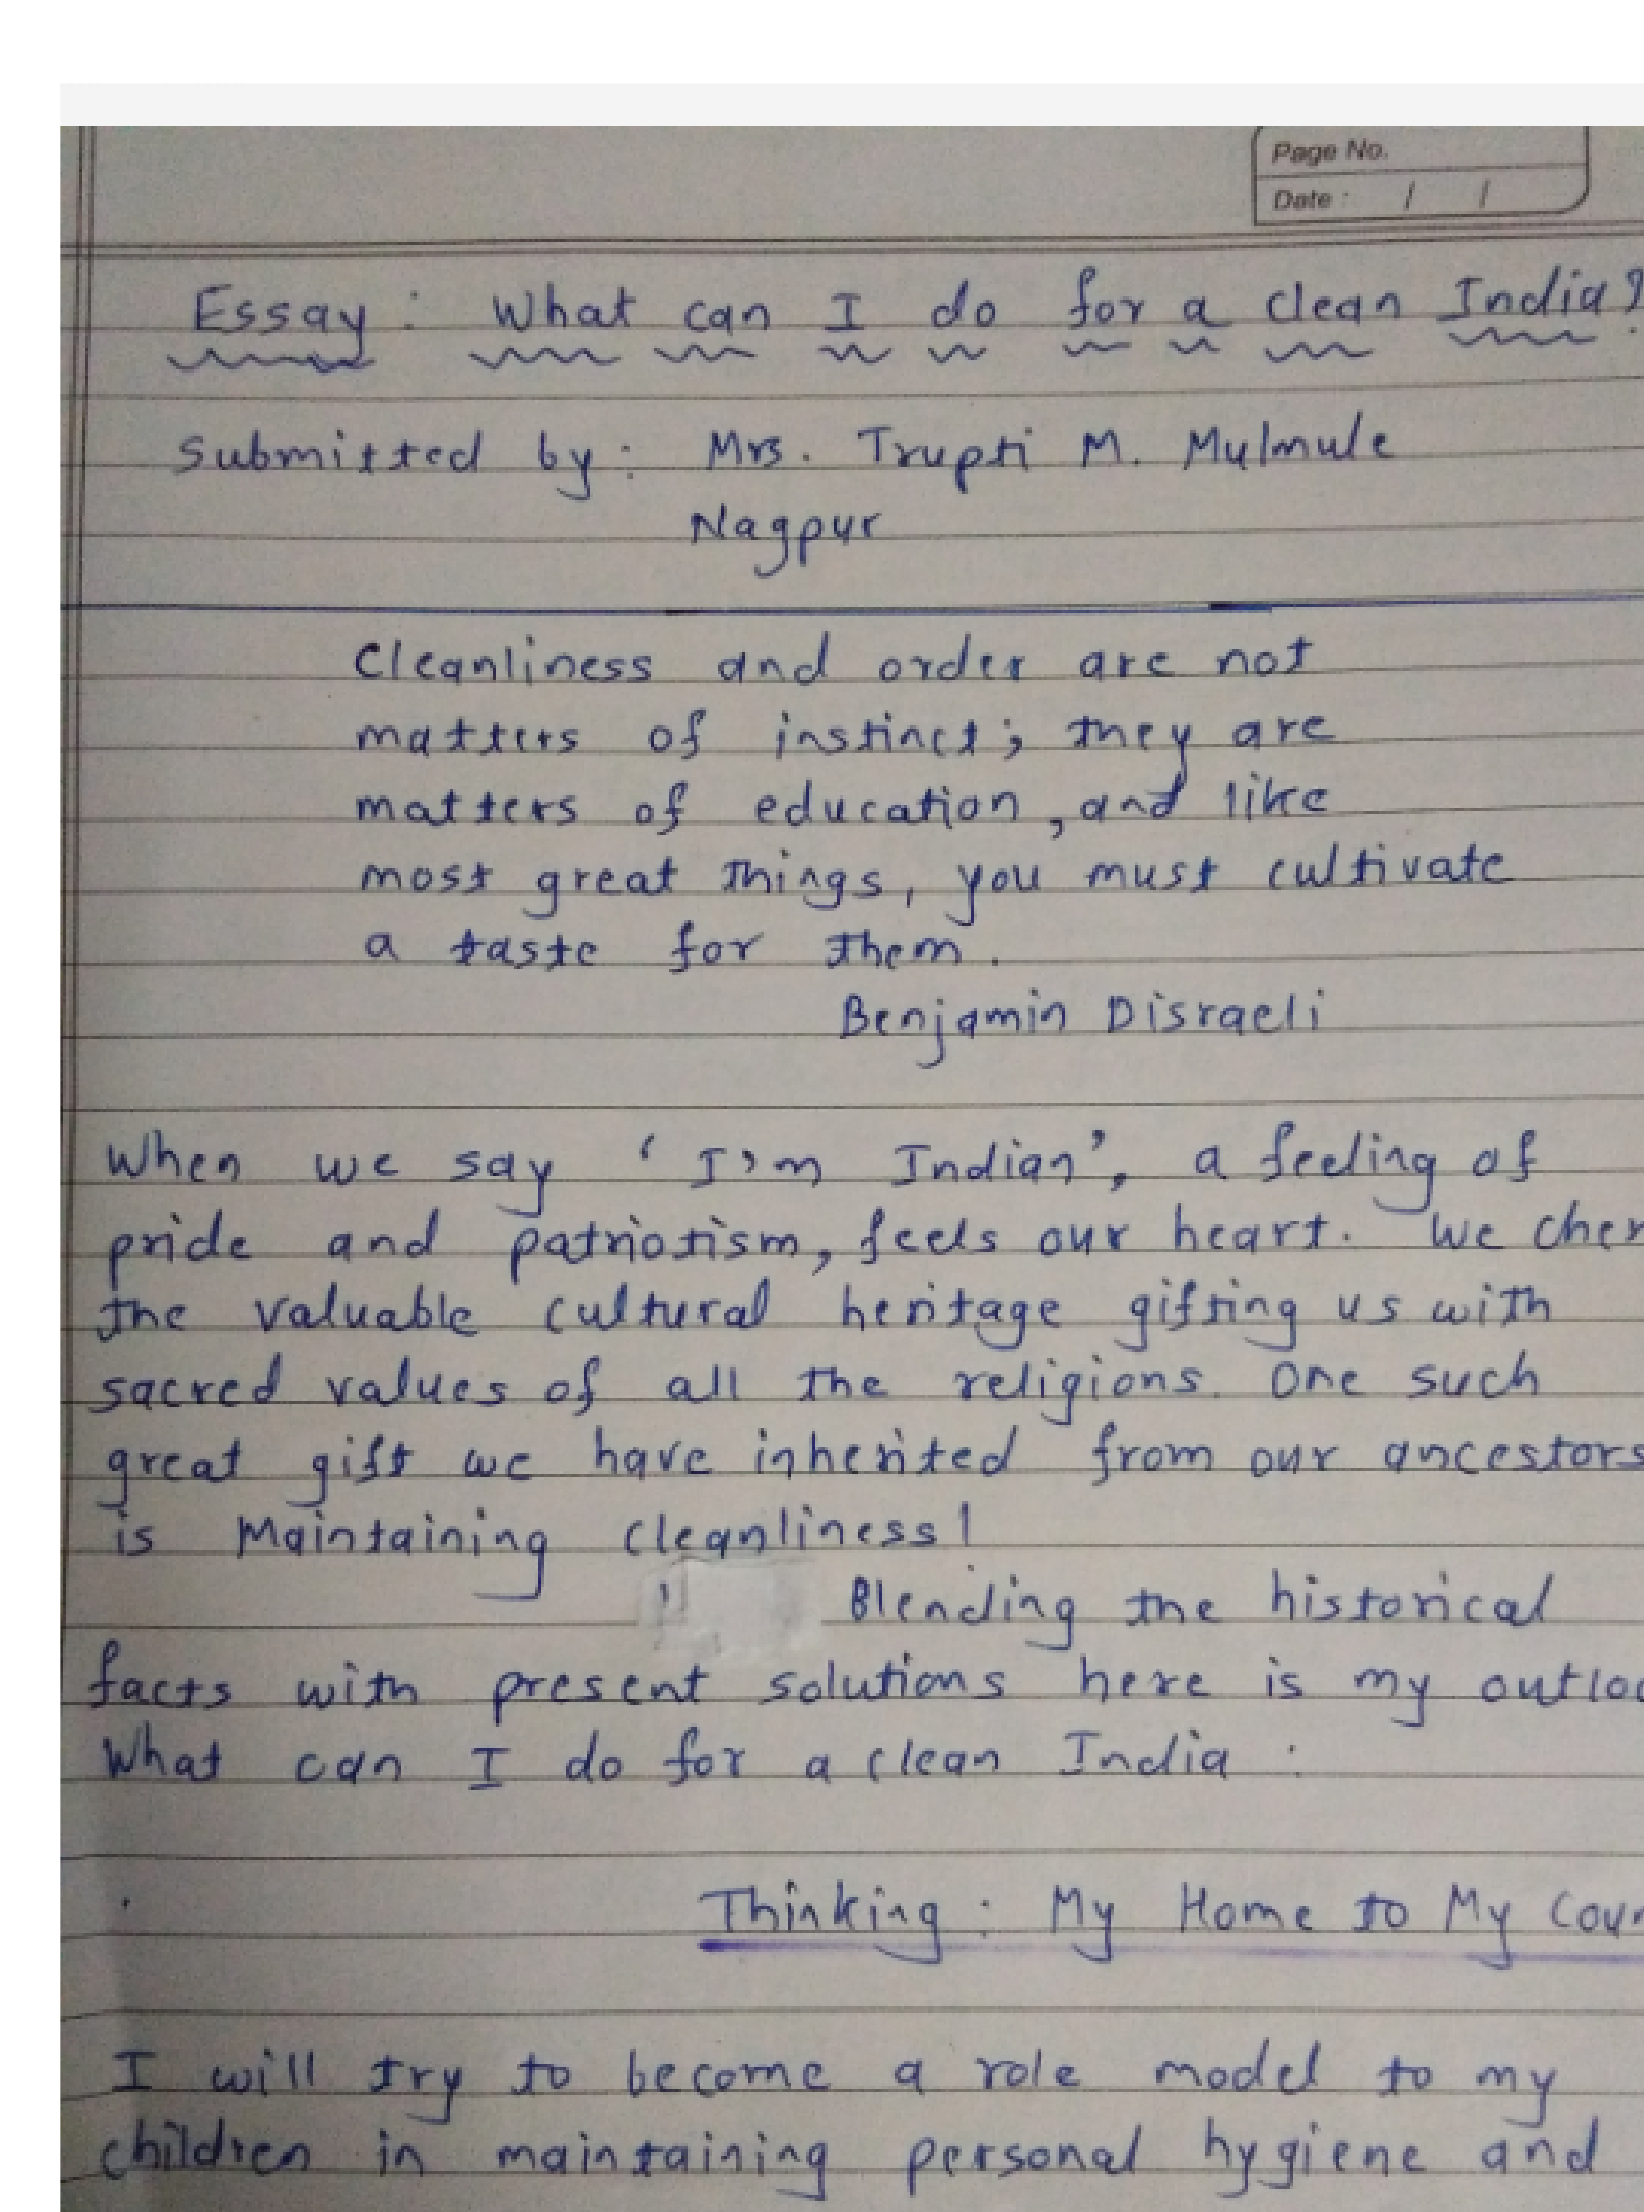 Page No.
Date : / /
Essay : What can I do for a clean India?
Submitted by : Mrs. Trupti M. Mulmule
Nagpur
Cleanliness and order are not
matters of instinct; they are
matters of education, and like
most great things, you must cultivate
a taste for them.
Benjamin Disraeli
When we say 'I'm Indian', a feeling of
pride and patriotism, feels our heart. We cher
the valuable cultural heritage gifting us with
sacred values of all the religions. One such
great gift we have inherited from our ancestors
is Maintaining Cleanliness!
Blending the historical
facts with present solutions here is my outloo
What can I do for a clean India :
Thinking : My Home to My Coun
I will try to become a role model to my
children in maintaining personal hygiene and